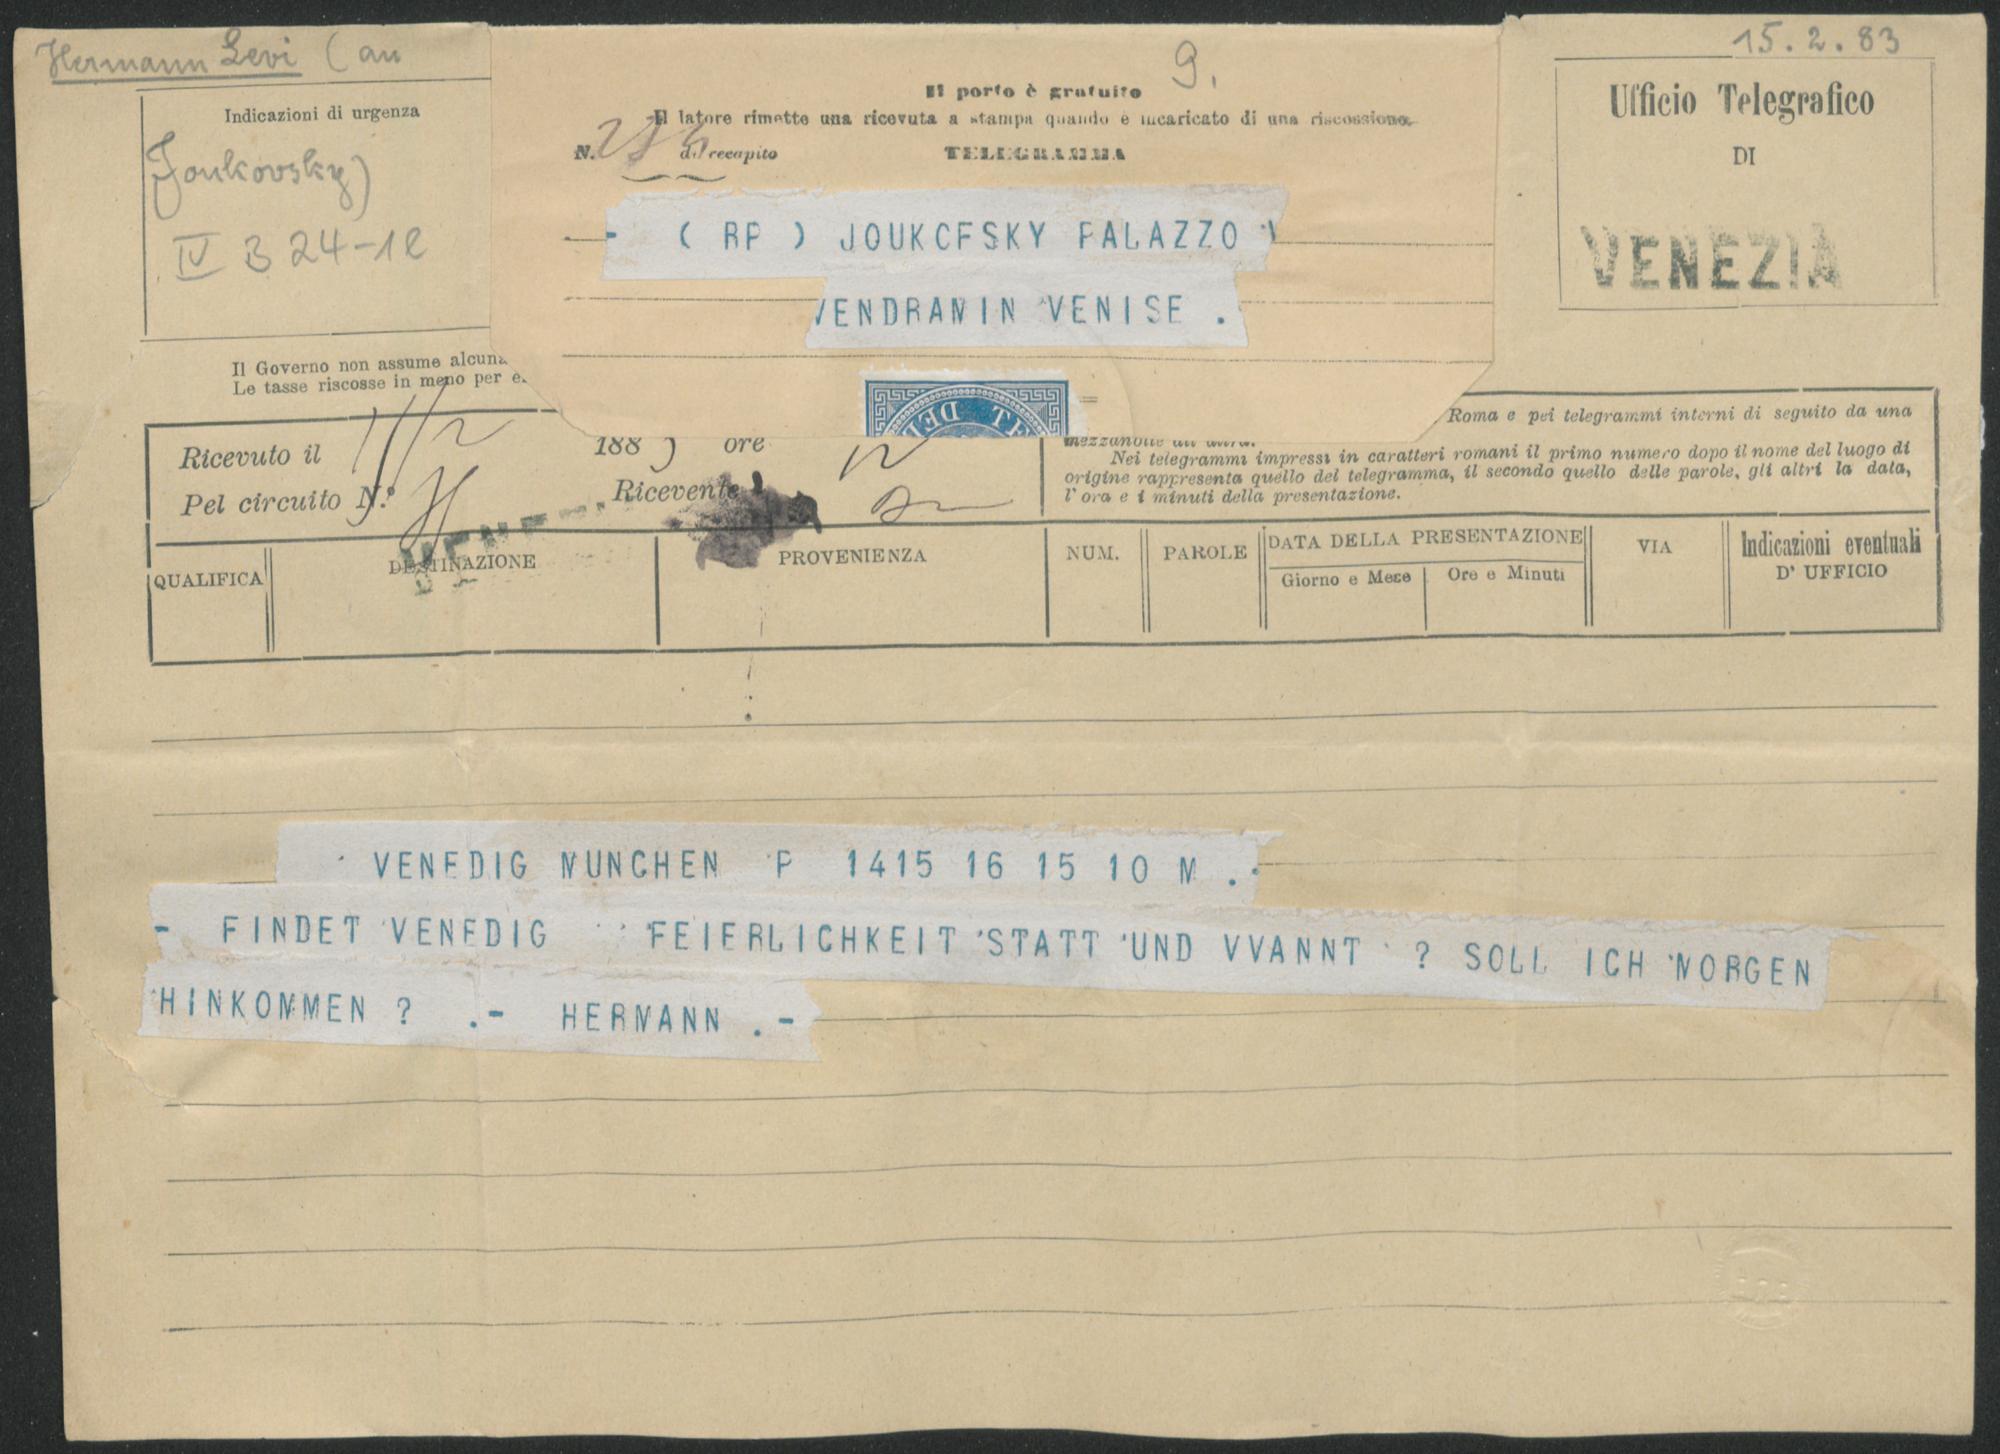 Hermann Levi (an
15.2.83
9.
Il porto è gratuito
Il latore rimette una ricevuta a stampa quando è incaricato di una riscossione.
N. di recapito TELEGRAMMA
Indicazioni di urgenza
Joukovsky)
IV B 24-12
Ufficio Telegrafico
DI
VENEZIA
- ( RP ) JOUKCFSKY PALAZZO V
VENDRAMIN VENISE .
Il Governo non assume alcuna
Le tasse riscosse in meno per e
Roma e pei telegrammi interni di seguito da una
mezzanotte all'altra.
Nei telegrammi impressi in caratteri romani il primo numero dopo il nome del luogo di
origine rappresenta quello del telegramma, il secondo quello delle parole, gli altri la data,
l'ora e i minuti della presentazione.
Ricevuto il 188 ore 12
Pel circuito N.º Ricevente
QUALIFICA DESTINAZIONE PROVENIENZA NUM. PAROLE DATA DELLA PRESENTAZIONE VIA Indicazioni eventuali
D' UFFICIO
Giorno e Mese Ore e Minuti
VENEDIG MUNCHEN P 1415 16 15 10 M .
- FINDET VENEDIG FEIERLICHKEIT STATT UND VVANNT ? SOLL ICH MORGEN
HINKOMMEN ? .- HERMANN .-